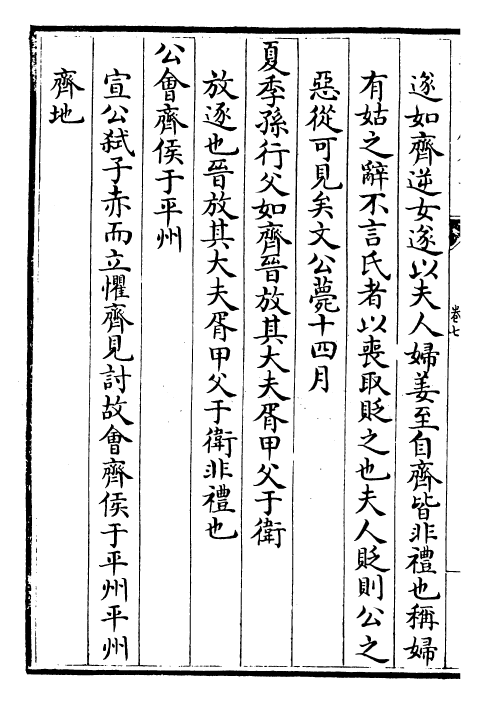 遂如齊逆女遂以夫人婦姜至自齊皆非禮也稱婦
有姑之辭不言氏者以喪取貶之也夫人貶則公之
惡從可見矣文公薨十四月
夏季孫行父如齊晉放其大夫胥甲父于衛
放逐也晉放其大夫胥甲父于衛非禮也
公會齊侯于平州
宣公弑子赤而立懼齊見討故會齊侯于平州平州
齊地
卷七